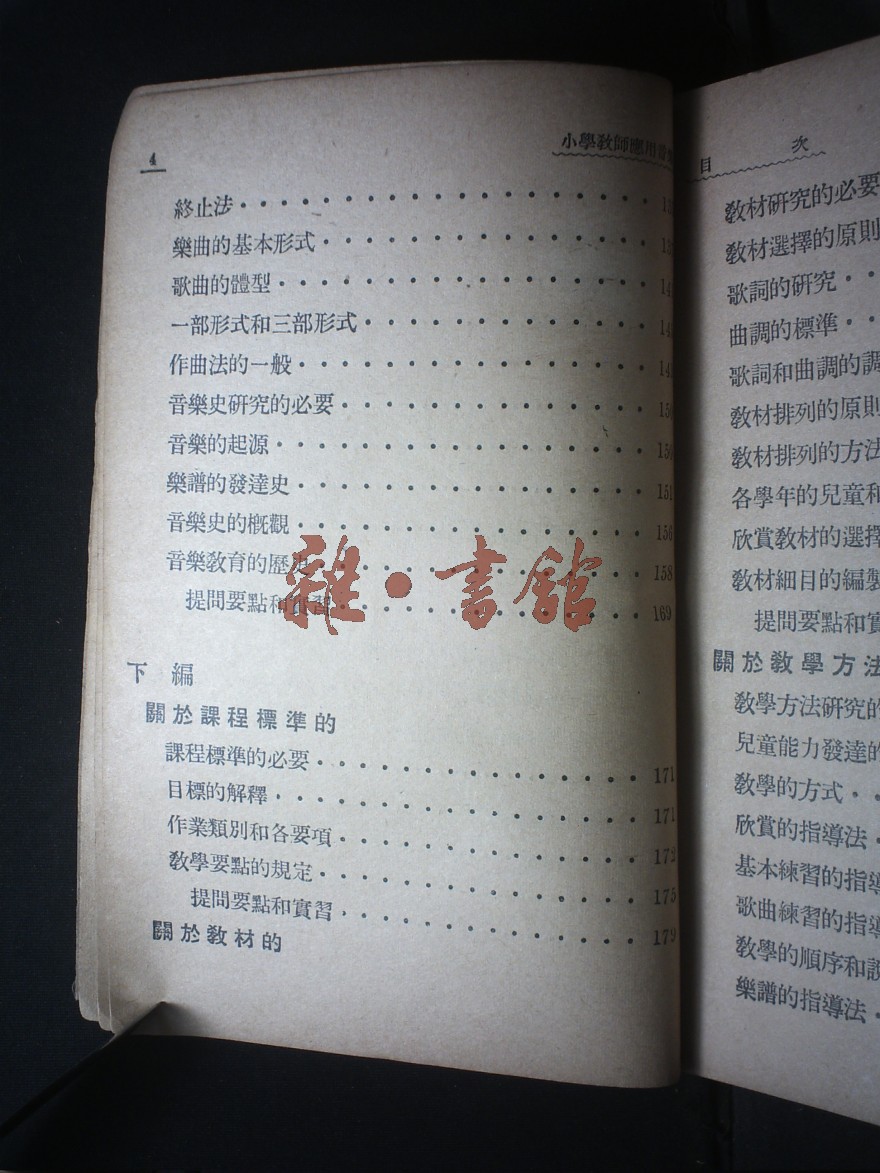 4
小學教師應用音
終止法
樂曲的基本形式
歌曲的體型
一部形式和三部形式
作曲法的一般
音樂史研究的必要 150
音樂的起源 150
樂譜的發達史 151
音樂史的概觀 156
音樂教育的歷史 158
提問要點和實習 169
雜·書館
下編
關於課程標準的
課程標準的必要 171
目標的解釋 171
作業類別和各要項 172
教學要點的規定 175
提問要點和實習 179
關於教材的
目次
教材研究的必要
教材選擇的原則
歌詞的研究
曲調的標準
歌詞和曲調的調
教材排列的原則
教材排列的方法
各學年的兒童和
欣賞教材的選擇
教材細目的編製
提問要點和實
關於教學方法
教學方法研究的
兒童能力發達的
教學的方式
欣賞的指導法
基本練習的指導
歌曲練習的指導
教學的順序和設
樂譜的指導法